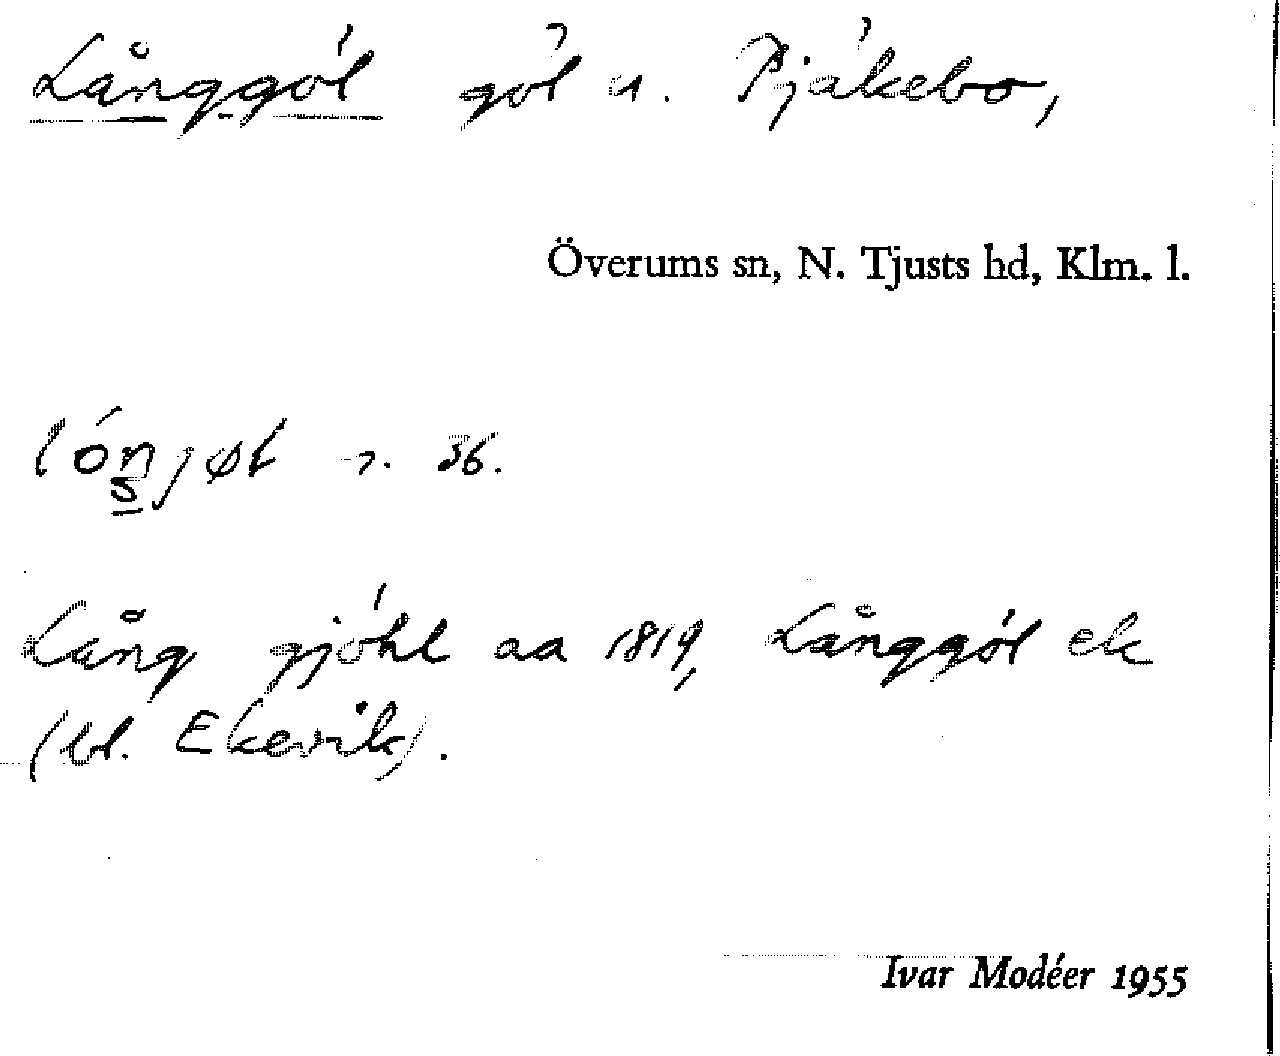 Långgöl göl u. Pjäkebo,
Överums sn, N. Tjusts hd, Klm. l.
36.
Lång gjöhl aa 1819, Långgöl ek
(bl. Ekevik).
Ivar Modéer 1955